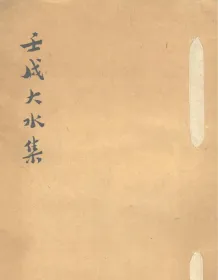 壬戌大水集